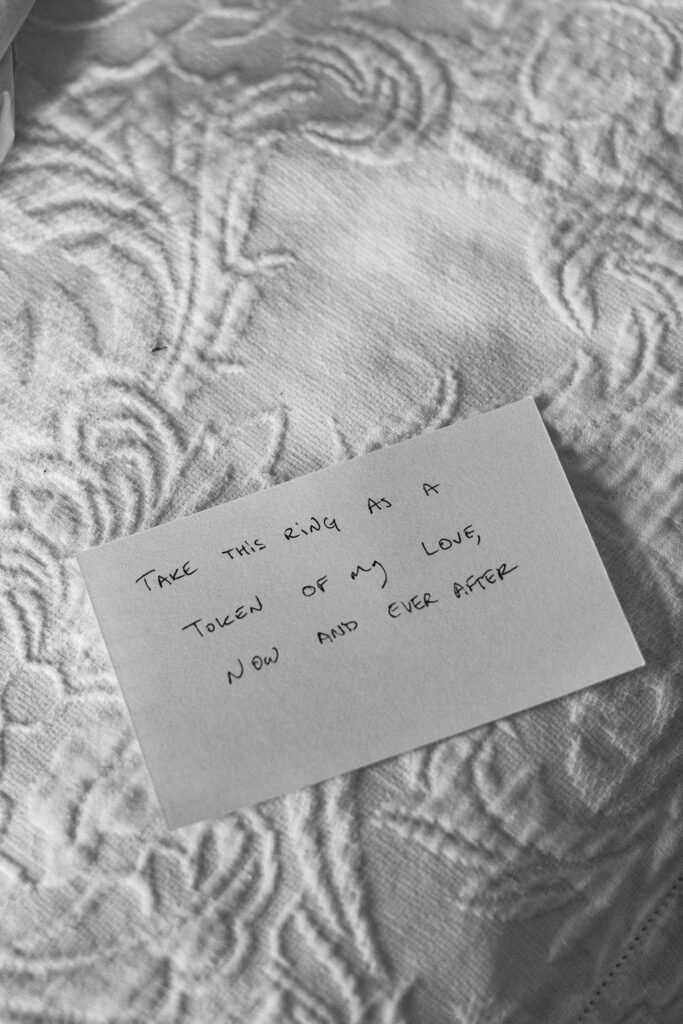 TAKE THIS RING AS A
TOKEN OF MY LOVE,
NOW AND EVER AFTER